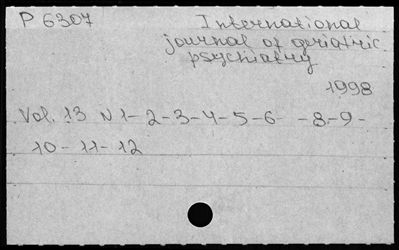 P 6307 International
journal of geriatric
psychiatry
1998
Vol. 13 N 1-2-3-4-5-6- -8-9-
10-11-12